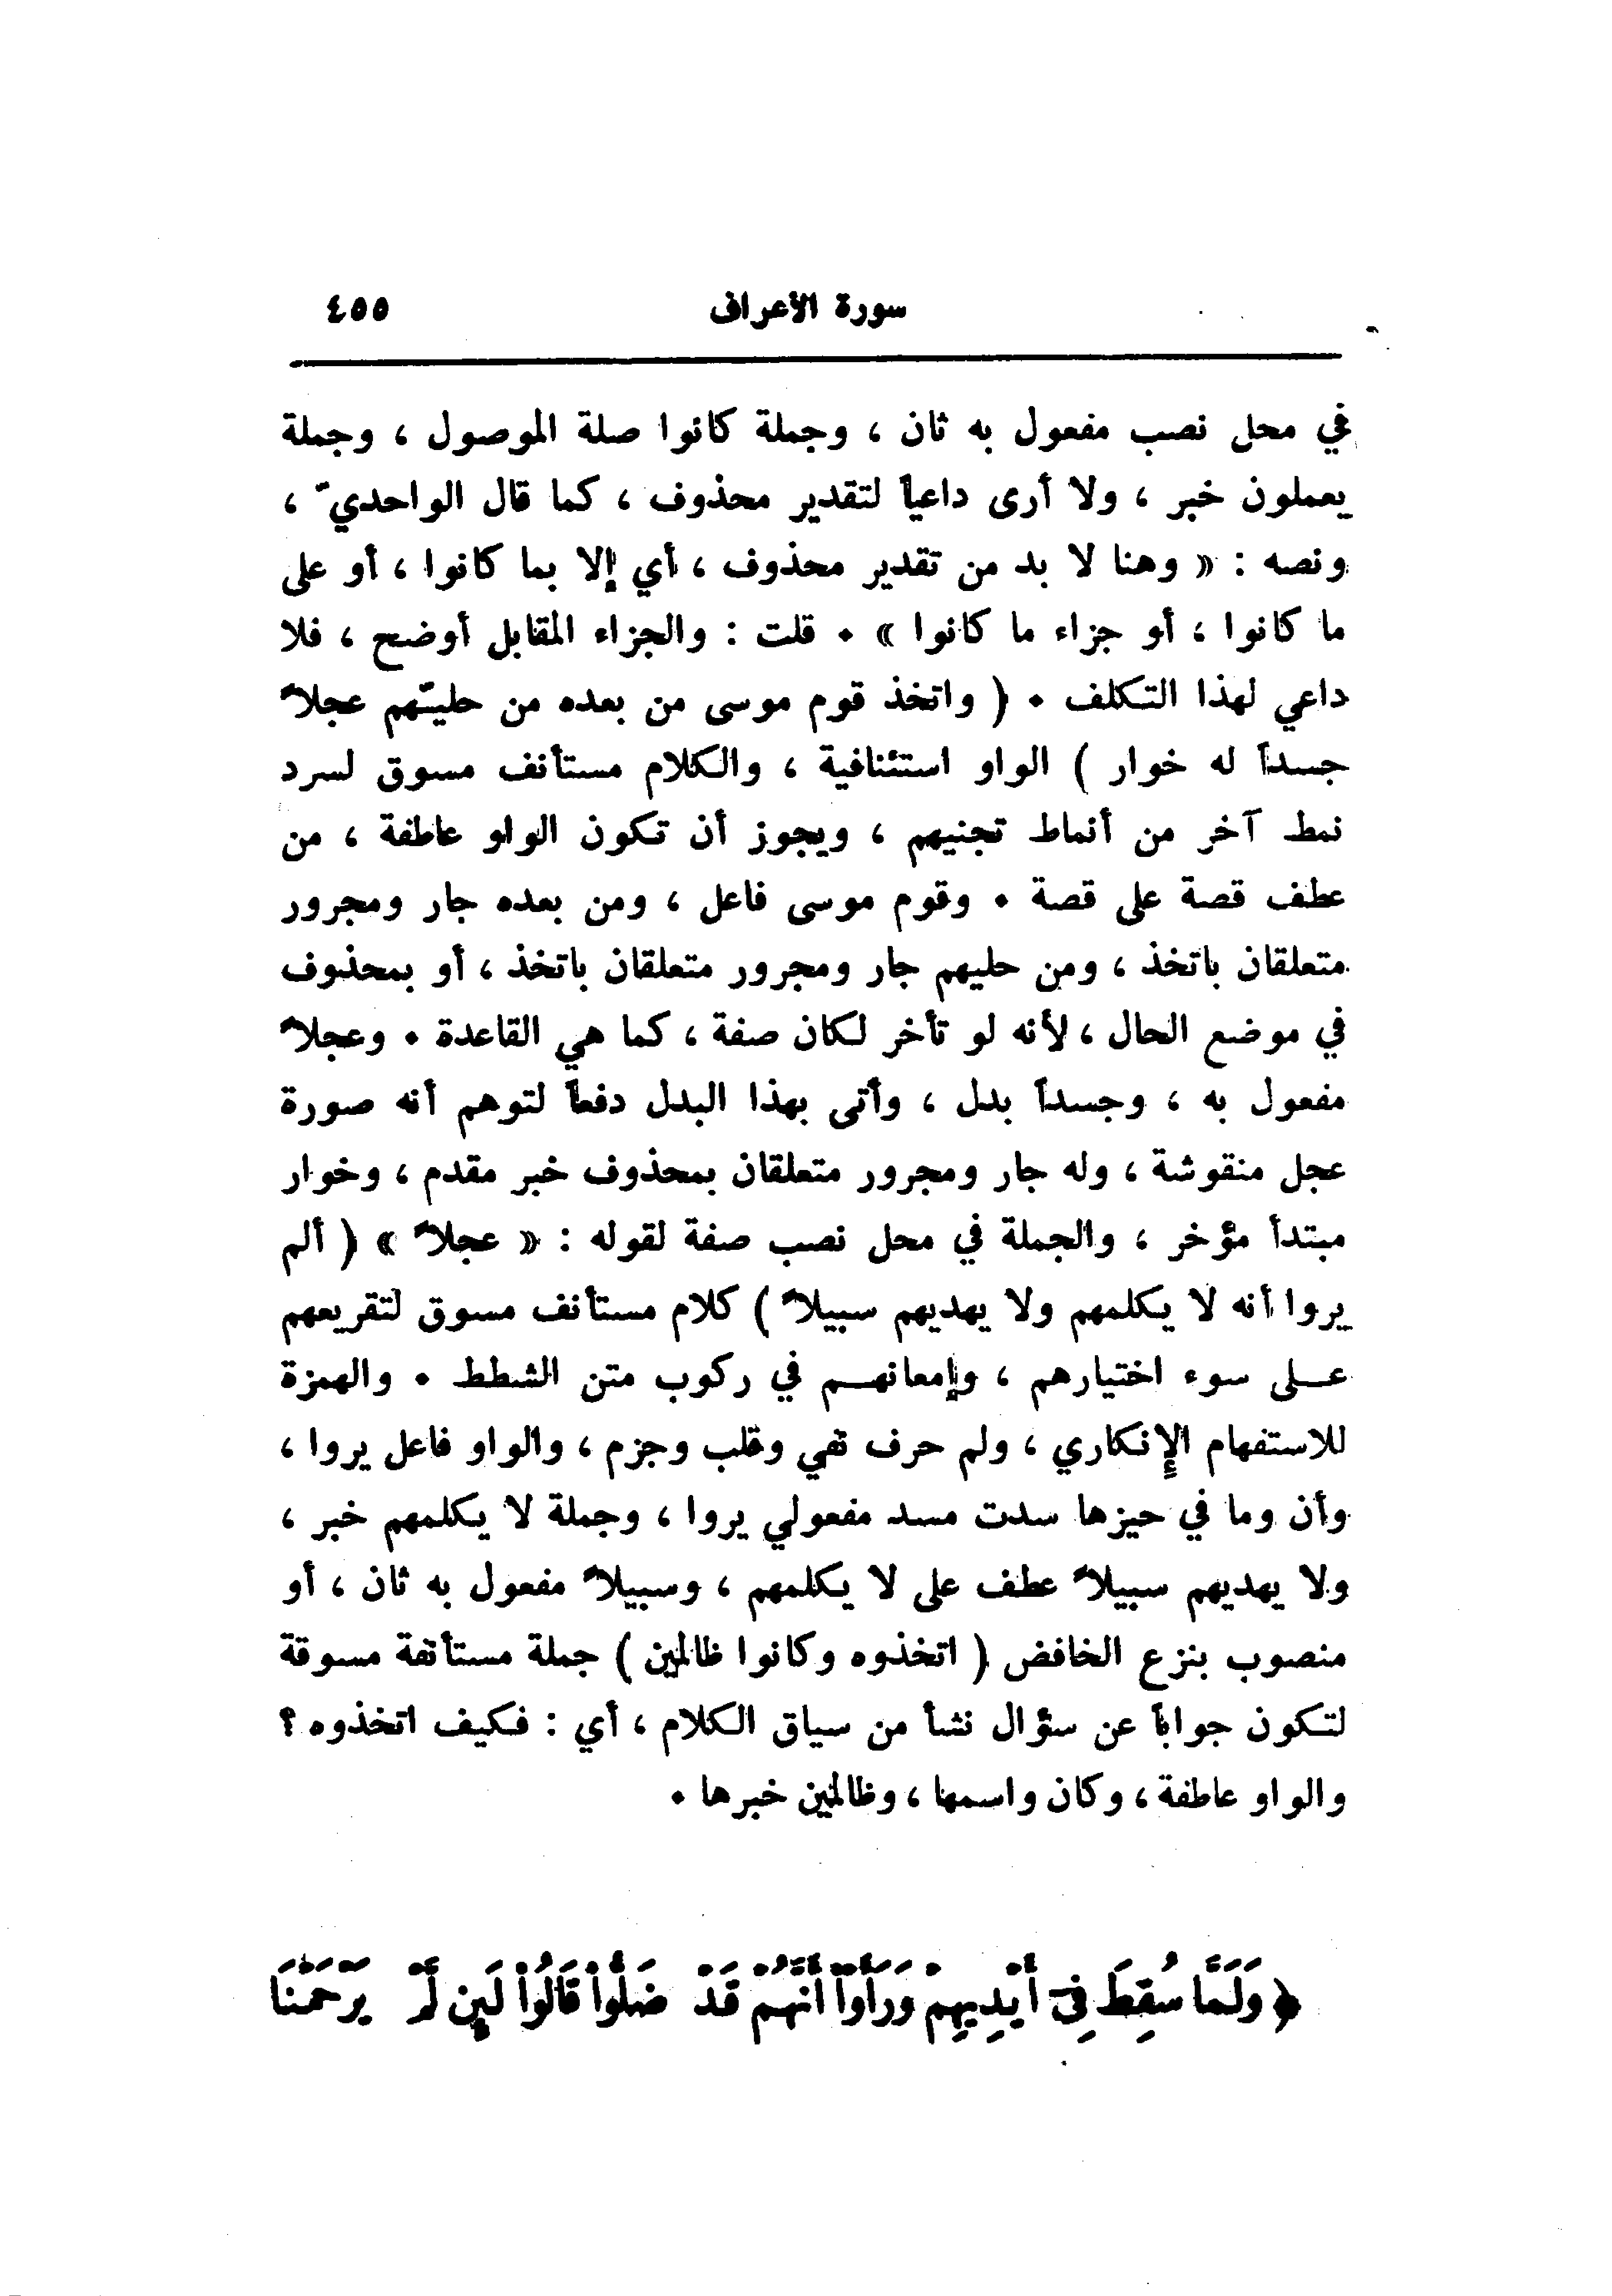 سورة الأعراف ٤٥٥
في محل نصب مفعول به ثان ، وجملة كانوا صلة الموصول ، وجملة
يعملون خبر ، ولا أرى داعياً لتقدير محذوف ، كما قال الواحديّ ،
ونصه : « وهنا لا بد من تقدير محذوف ، أي إلا بما كانوا ، أو على
ما كانوا ، أو جزاء ما كانوا » . قلت : والجزاء المقابل أوضح ، فلا
داعي لهذا التكلف . ( واتخذ قوم موسى من بعده من حليّهم عجلاً
جسداً له خوار ) الواو استئنافية ، والكلام مستأنف مسوق لسرد
نمط آخر من أنماط تجنيهم ، ويجوز أن تكون الواو عاطفة ، من
عطف قصة على قصة . وقوم موسى فاعل ، ومن بعده جار ومجرور
متعلقان باتخذ ، ومن حليهم جار ومجرور متعلقان باتخذ ، أو بمحذوف
في موضع الحال ، لأنه لو تأخر لكان صفة ، كما هي القاعدة . وعجلاً
مفعول به ، وجسداً بدل ، وأتى بهذا البدل دفعاً لتوهم أنه صورة
عجل منقوشة ، وله جار ومجرور متعلقان بمحذوف خبر مقدم ، وخوار
مبتدأ مؤخر ، والجملة في محل نصب صفة لقوله : « عجلاً » ( ألم
يروا أنه لا يكلمهم ولا يهديهم سبيلاً ) كلام مستأنف مسوق لتقريعهم
عـلى سوء اختيارهم ، وإمعانهـم في ركوب متن الشطط . والهمزة
للاستفهام الإنكاري ، ولم حرف نفي وقلب وجزم ، والواو فاعل يروا ،
وأن وما في حيزها سدت مسد مفعولي يروا ، وجملة لا يكلمهم خبر ،
ولا يهديهم سبيلاً عطف على لا يكلمهم ، وسبيلاً مفعول به ثان ، أو
منصوب بنزع الخافض ( اتخذوه وكانوا ظالمين ) جملة مستأنفة مسوقة
لتكون جواباً عن سؤال نشأ من سياق الكلام ، أي : فكيف اتخذوه ؟
والواو عاطفة ، وكان واسمها ، وظالمين خبرها .
﴿ وَلَمَّا سُقِطَ فِىٓ أَيْدِيهِمْ وَرَأَوْاْ أَنَّهُمْ قَدْ ضَلُّواْ قَالُواْ لَئِن لَّمْ يَرْحَمْنَا